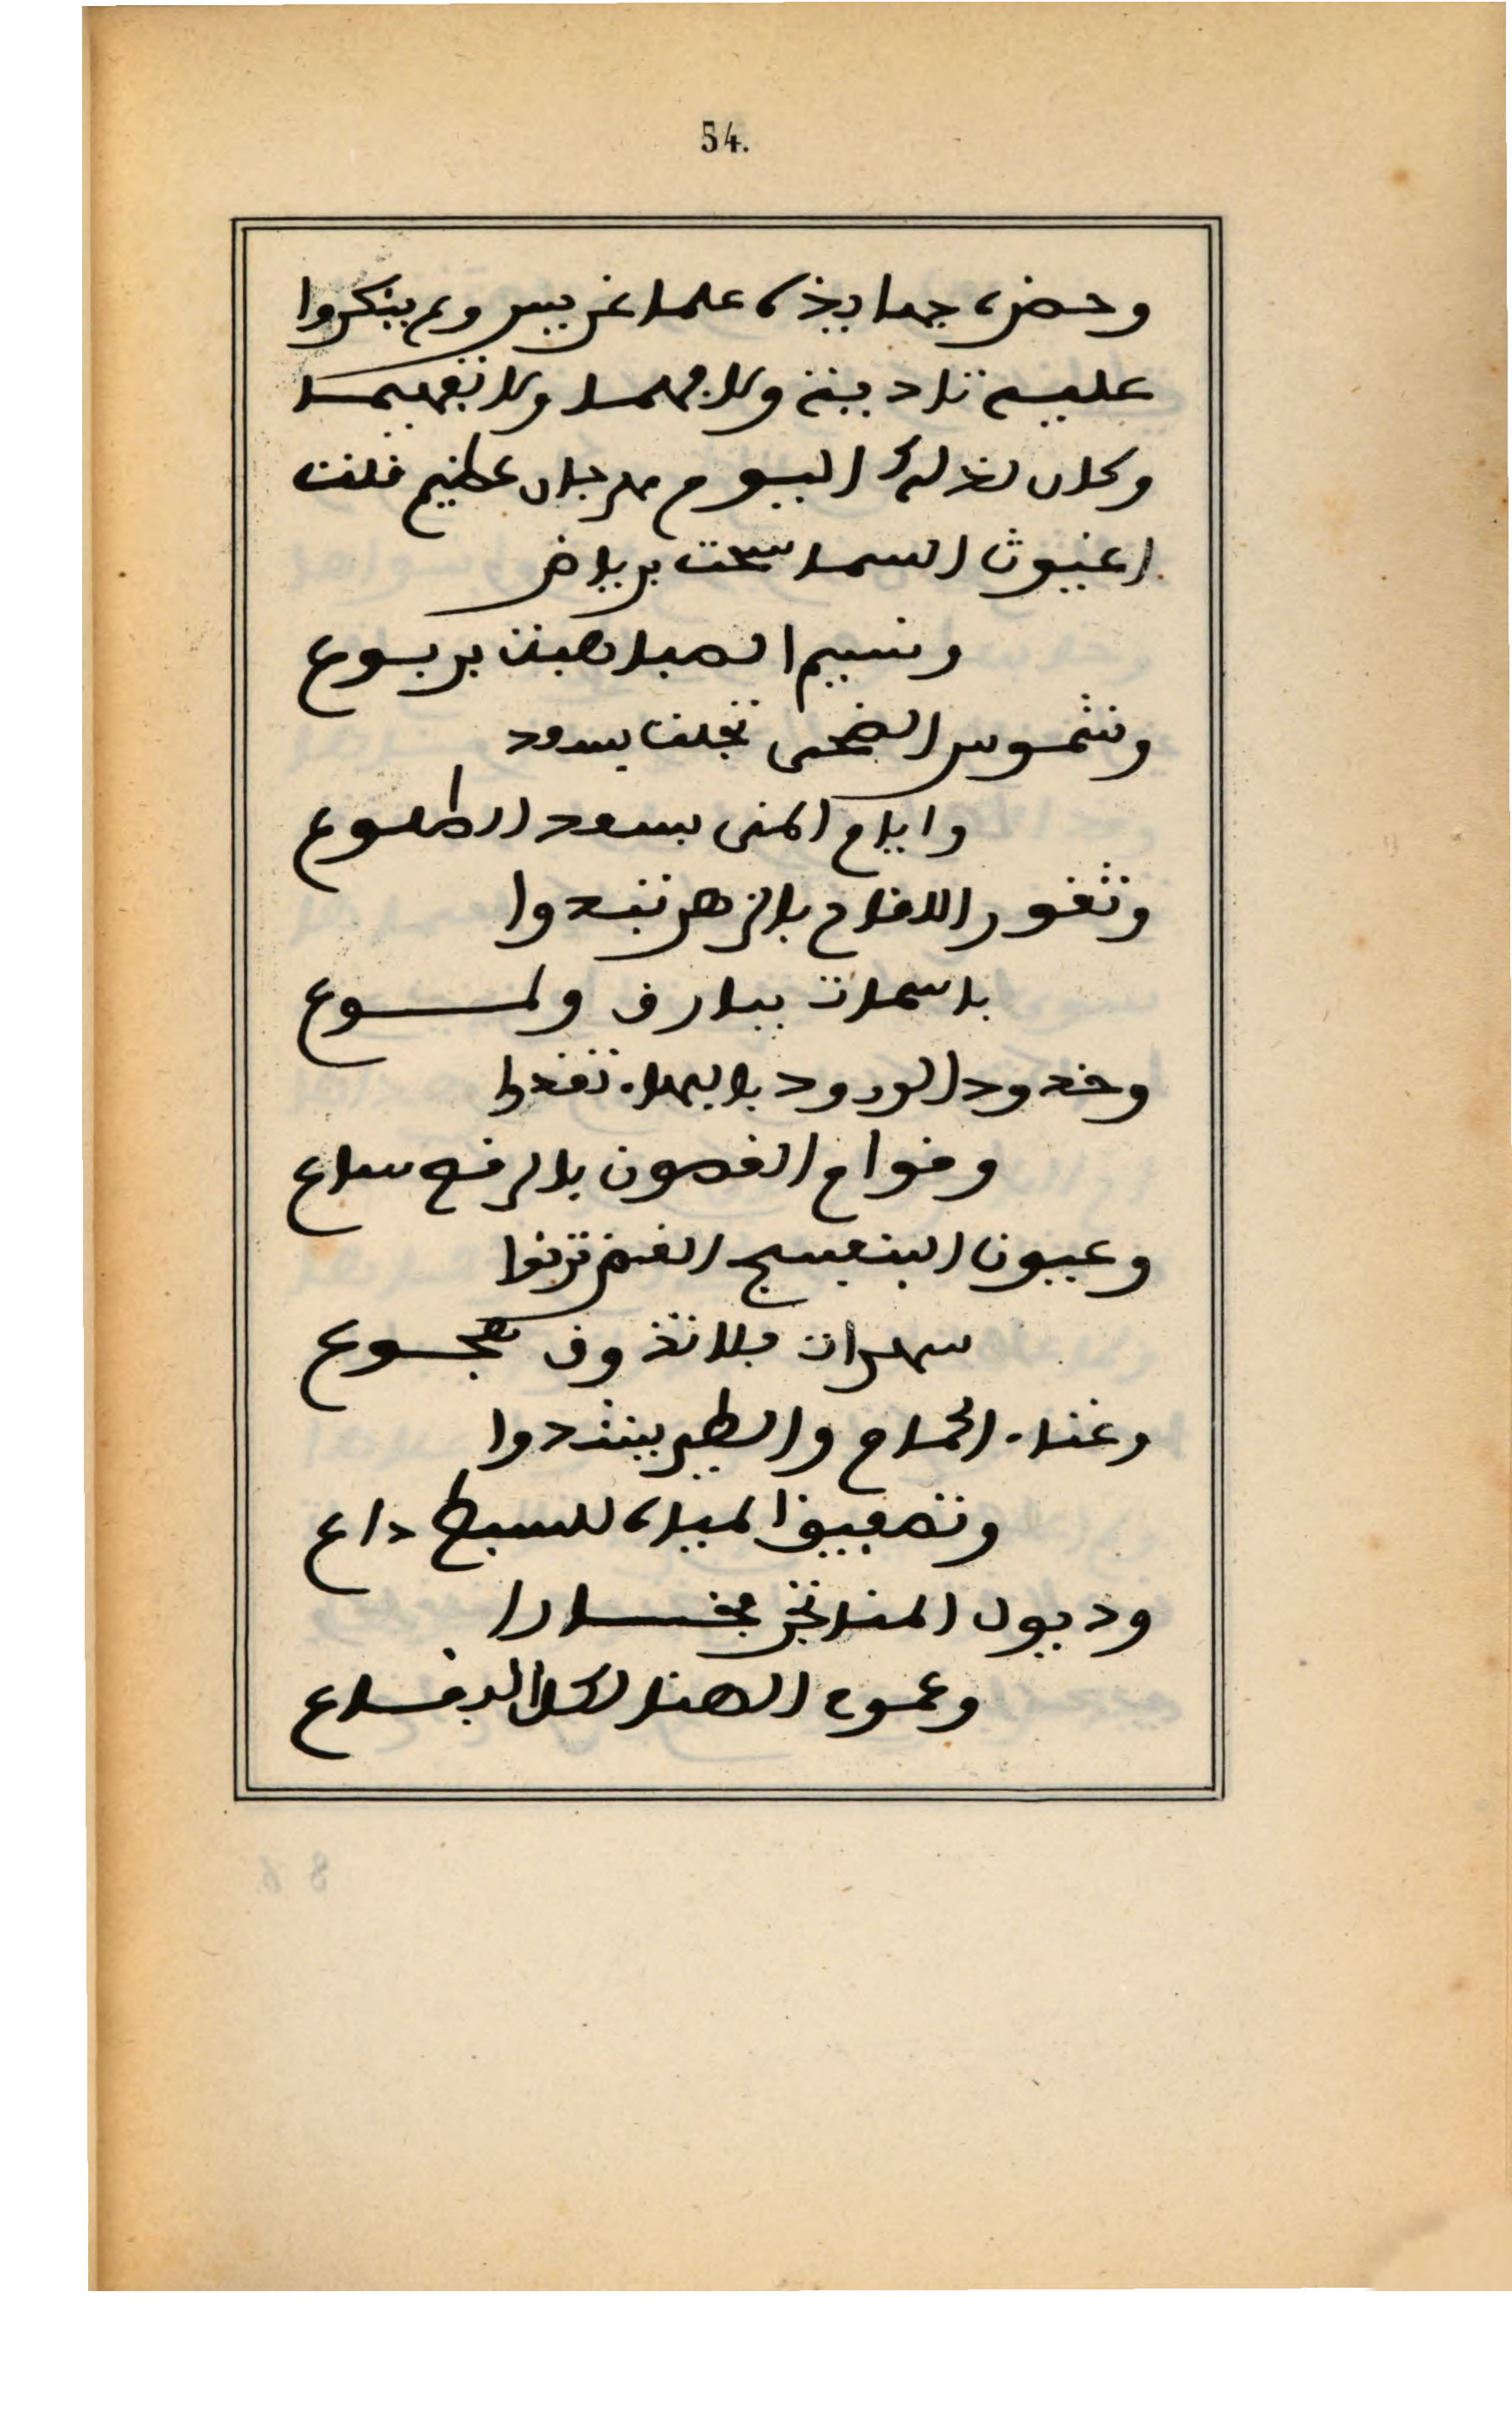 54.
وحضره جهابيذه علما غريبين ولم ينكروا
عليه تاديته ولا فهما ولا تفهيما
وكان لذلك اليوم مهرجان عظيم فلت
اغيوث السما سحت برياض
ونسيم الصبا هبت بربوع
وشموس الضحى تجلت بسعود
وايام المنى بسعد الطلوع
وثغور الاقاح بالزهر تبدوا
باسمات ببارق ولموع
وخدود الورود بالبهاء تغدوا
وقوام الغصون بالرقه ساع
وعيون البنفسج الغض ترنوا
سهرات فلا تذوق هجوع
وغناء الحمام والطير ينشدوا
وتصفيق المياه للسبط داع
وذيول المنا تجر فخارا
وعموم الهنا لكل البقاع